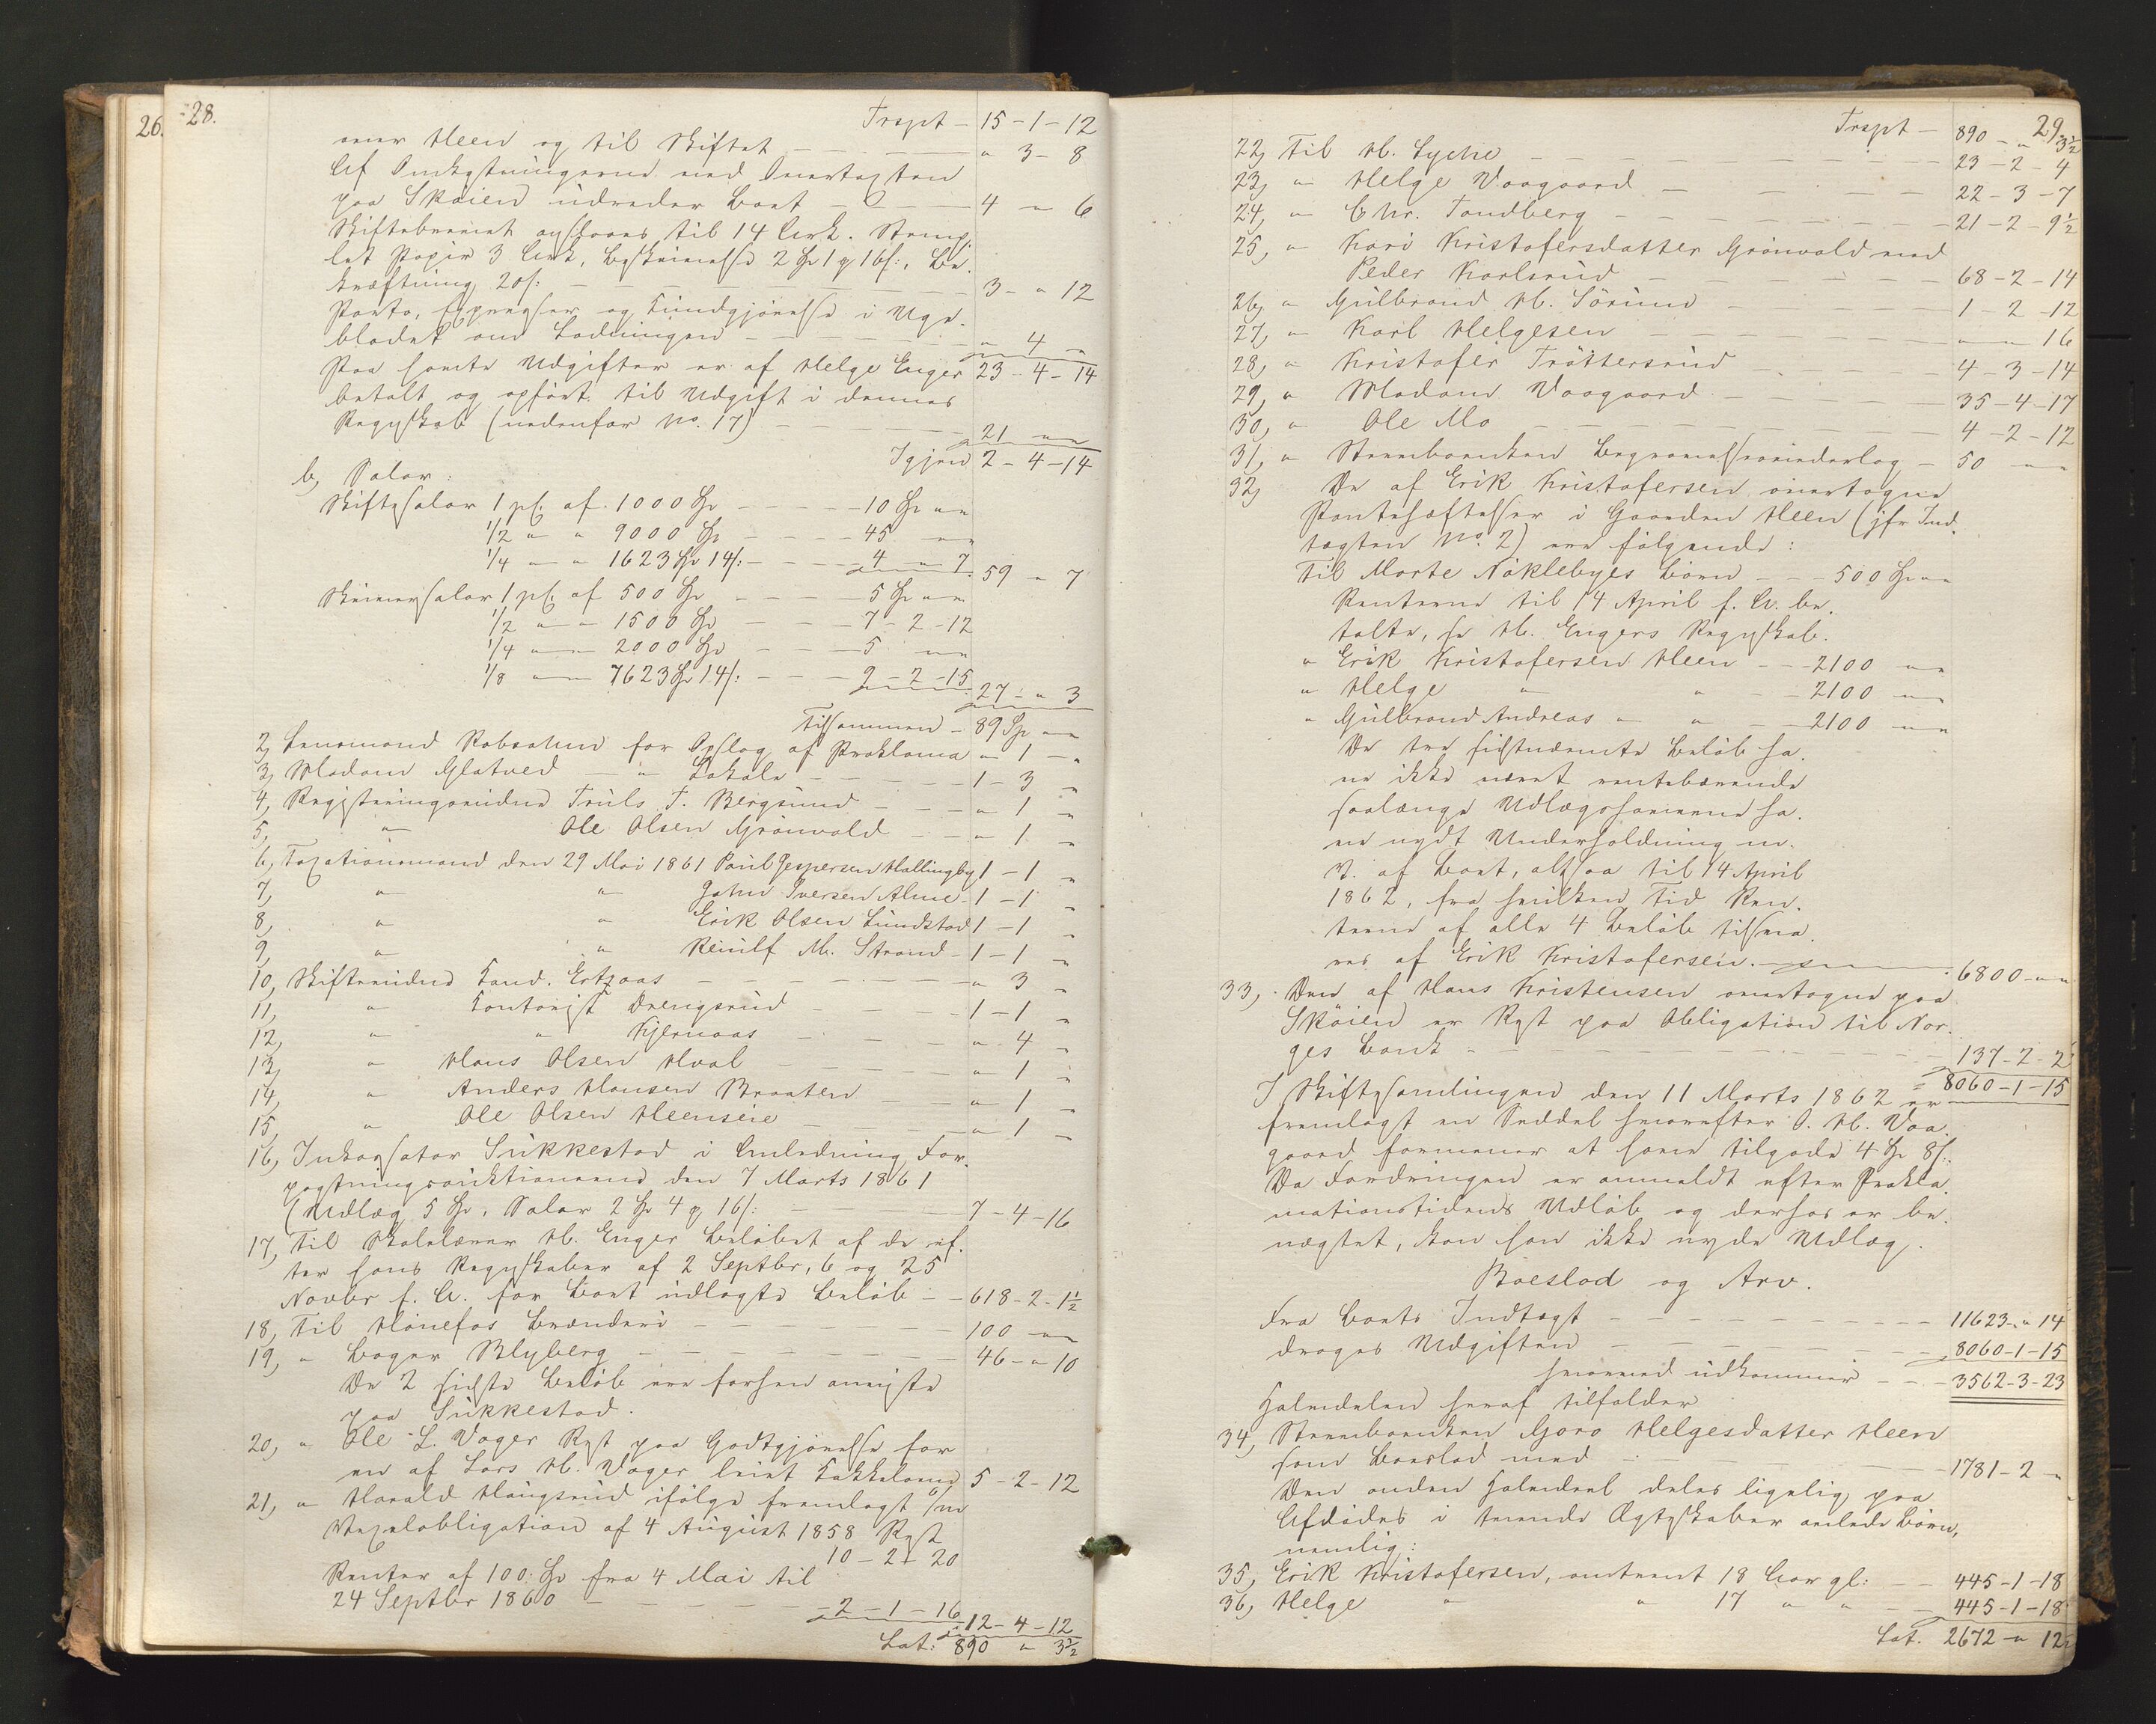 26.
28.
Trspt - 15 - 1 - 12
over Heen og til Skiftet - " 3 - 8
Af Omkostningerne ved Overtagten
paa Skøien udreder Boet - 4 - " 6
Skiftebrevet opstaaes til 14 Ark. Stemp-
let Papir 3 Ark, Beskrivelse 2 Spd 1 ort 16 s:, Be-
kræftning 20 s: - 3 - " 12
Porto, Expresser og Kundgjørelse i Uge-
bladet om Lodningen - " 4 "
Paa hvilke Udgifter er af Helge Enger 23 - 4 - 14
betalt og opført til Udgift i dennes
Regnskab (nedenfor No. 17) - 21 " "
Igjen 2 - 4 - 14
b, Salær:
Skiftesalær 1 pC. af 1000 Spd - 10 Spd " "
1/2 " " 9000 Spd - 45 " "
1/4 " " 1623 Spd 14 s: - 4 " 7 59 " 7
Skriversalær 1 pC. af 500 Spd - 5 Spd " "
1/2 " " 1500 Spd - 7 - 2 - 12
1/4 " " 2000 Spd - 5 " "
1/8 " " 7623 Spd 14 s: - 9 - 2 - 15 27 - " 3
Tilsammen - 89 Spd " "
2, Lensmand Robsahm for Opslag af Proklama " 1 - "
3, Madam Glatved - " Lokale - 1 - 3 "
4, Registreringsvidne Truls T. Bergsund - " 1 "
5, " Ole Olsen Grønvold - " 1 "
6, Taxationsmand den 29 Mai 1861 Paul Jespersen Hallingby 1 - 1 "
7, " " John Iversen Alme - 1 - 1 "
8, " " Erik Olsen Lundstad 1 - 1 "
9, " " Reiulf M. Strand - 1 - 1 "
10, Skiftevidne Cand. Ertzaas - " 3 "
11, " Kontorist Drengsrud - 1 - 1 "
12, " " Kjernaas - " 4 "
13, " Hans Olsen Hval - " 1 "
14, " Anders Hansen Braaten - " 1 "
15, " Ole Olsen Heenseie - " 1 "
16, Inkassator Sukkestad i Anledning For-
pagtningsauktionerne den 7 Marts 1861
(Udlæg 5 Spd, Salær 2 Spd 4 ort 16 s: - 7 - 4 - 16
17, Til Skolelærer H. Enger Beløbet af de ef-
ter hans Regnskaber af 2 Septbr, 6 og 25
Novbr f. A. for Boet udlagte Beløb - 618 - 2 - 1½
18, Til Hønefos Brænderi - 100 " "
19, " Bager Blyberg - 46 - " 10
De 2 sidste Beløb ere forhen anviste
paa Sukkestad.
20, " Ole L. Vager Rest paa Godtgjørelse for
en af Lars H. Vager leiet Kakkelovn 5 - 2 - 12
21, " Harald Haugsrud ifølge fremlagt
Vexelobligation af 4 August 1858 Rest
10 - 2 - 20
Renter af 100 Spd fra 4 Mai til
24 Septbr 1860 - 2 - 1 - 16 12 - 4 - 12
Lat: 890 " 3½
29.
Trspt - 890 - " 3½
22, Til H. Lyche - 23 - 2 - 4
23, " Helge Vaagaard - 22 - 3 - 7
24, " Chr. Tandberg - 21 - 2 - 9½
25, " Kari Kristofersdatter Grønvold ved
Peder Karlsrud - 68 - 2 - 14
26, " Gulbrand H. Sørum - 1 - 2 - 12
27, " Karl Helgesen - " " 16
28, " Kristofer Trøttersrud - 4 - 3 - 14
29, " Madam Vaagaard - 35 - 4 - 17
30, " Ole Mo - 4 - 2 - 12
31, " Steenbaarden Begravelsesvederlag - 50 " "
32, De af Erik Kristofersen overtagne
Panteheftelser i Gaarden Heen (jfr Ind-
tægten No. 2) ere følgende:
Til Marte Nøklebyes Børn - 500 Spd " "
Renterne til 14 April f. A. be-
talte, se H. Engers Regnskab.
" Erik Kristofersen Heen - 2100 " "
" Helge " " - 2100 " "
" Gulbrand Andreas " " - 2100 " "
De tre sidstnævnte Beløb ha-
ve ikke været rentebærende
saalænge Udlægshaverne ha-
ve nydt Underholdning m.
V. af Boet, altsaa til 14 April
1862, fra hvilken Tid Ren-
terne af alle 4 Beløb tilsva-
res af Erik Kristofersen. - 6800 " "
33, Den af Hans Kristensen overtagne paa
Skøien er Rest paa Obligation til Nor-
ges Bank - 137 - 2 - 2
8060 - 1 - 15
I Skiftesamlingen den 11 Marts 1862 er
fremlagt en Seddel hvorefter O. H. Vaa-
gaard formener at have tilgode 4 Spd 8 s:
Da Fordringen er anmeldt efter Prokla-
mationstidens Udløb og derhos er be-
nægtet, kan han ikke nyde Udlæg.
Boeslod og Arv.
Fra Boets Indtægt - 11623 - " 14
drages Udgiften - 8060 - 1 - 15
hvorved udkommer - 3562 - 3 - 23
Halvdelen heraf tilfalder
34, Goro Helgesdatter Heen
som Boeslod med - 1781 - 2 "
Den anden Halvdeel deles ligelig paa
Afdødes i tvende Ægteskaber avlede Børn,
nemlig:
35, Erik Kristofersen, omtrent 18 Aar gl: - 445 - 1 - 18
36, Helge " " 17 " " - 445 - 1 - 18
Lat. 2672 - " 12